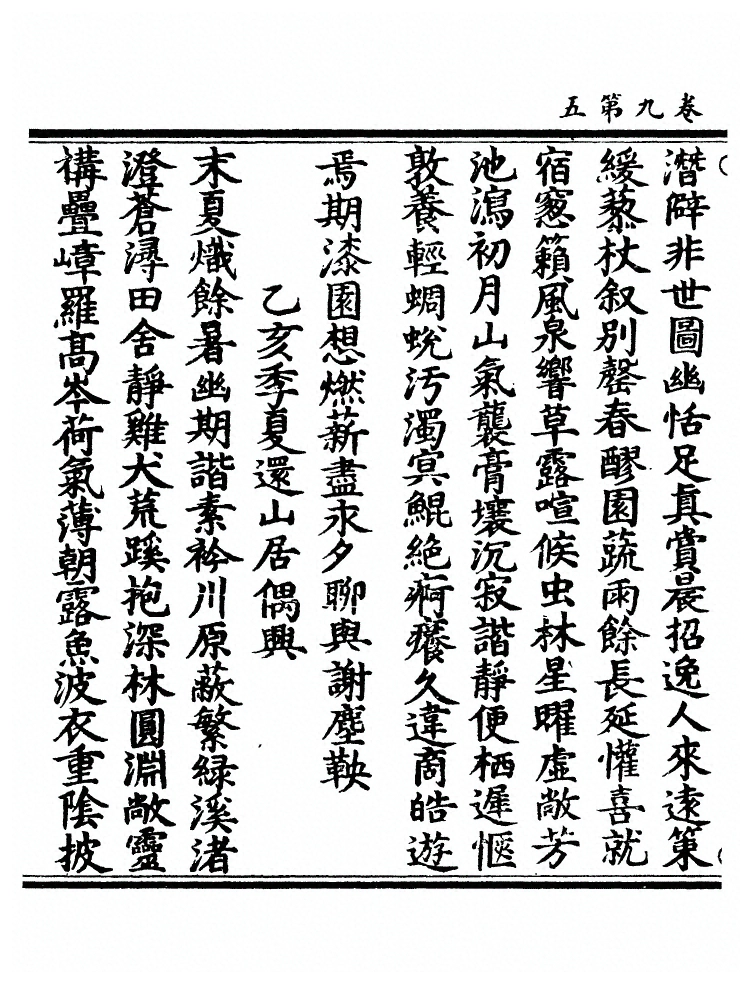 卷九第五
潛辟非世圖幽恬足真賞晨招逸人來遠策
緩藜杖叙别罄春醪園蔬雨餘長延懽喜就
宿窓籟風泉響草露喧候虫林星曜虛敞芳
池瀉初月山氣襲膏壤沉寂諧靜便栖遲愜
敦養輕蜩蛻汚濁冥鯤絶痾癢久違商皓遊
焉期漆園想燃薪盡永夕聊與謝塵鞅
乙亥季夏還山居偶興
末夏熾餘暑幽期諧素衿川原蔽繁緑溪渚
澄蒼潯田舍靜雞犬荒蹊抱深林圓淵敞靈
構疊嶂羅高岑荷氣薄朝露魚波衣重陰披